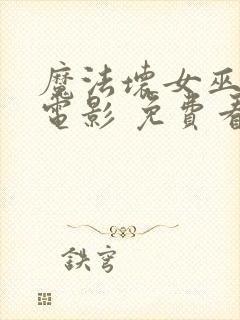 魔法壞女巫
電影 免費看
鉄穹